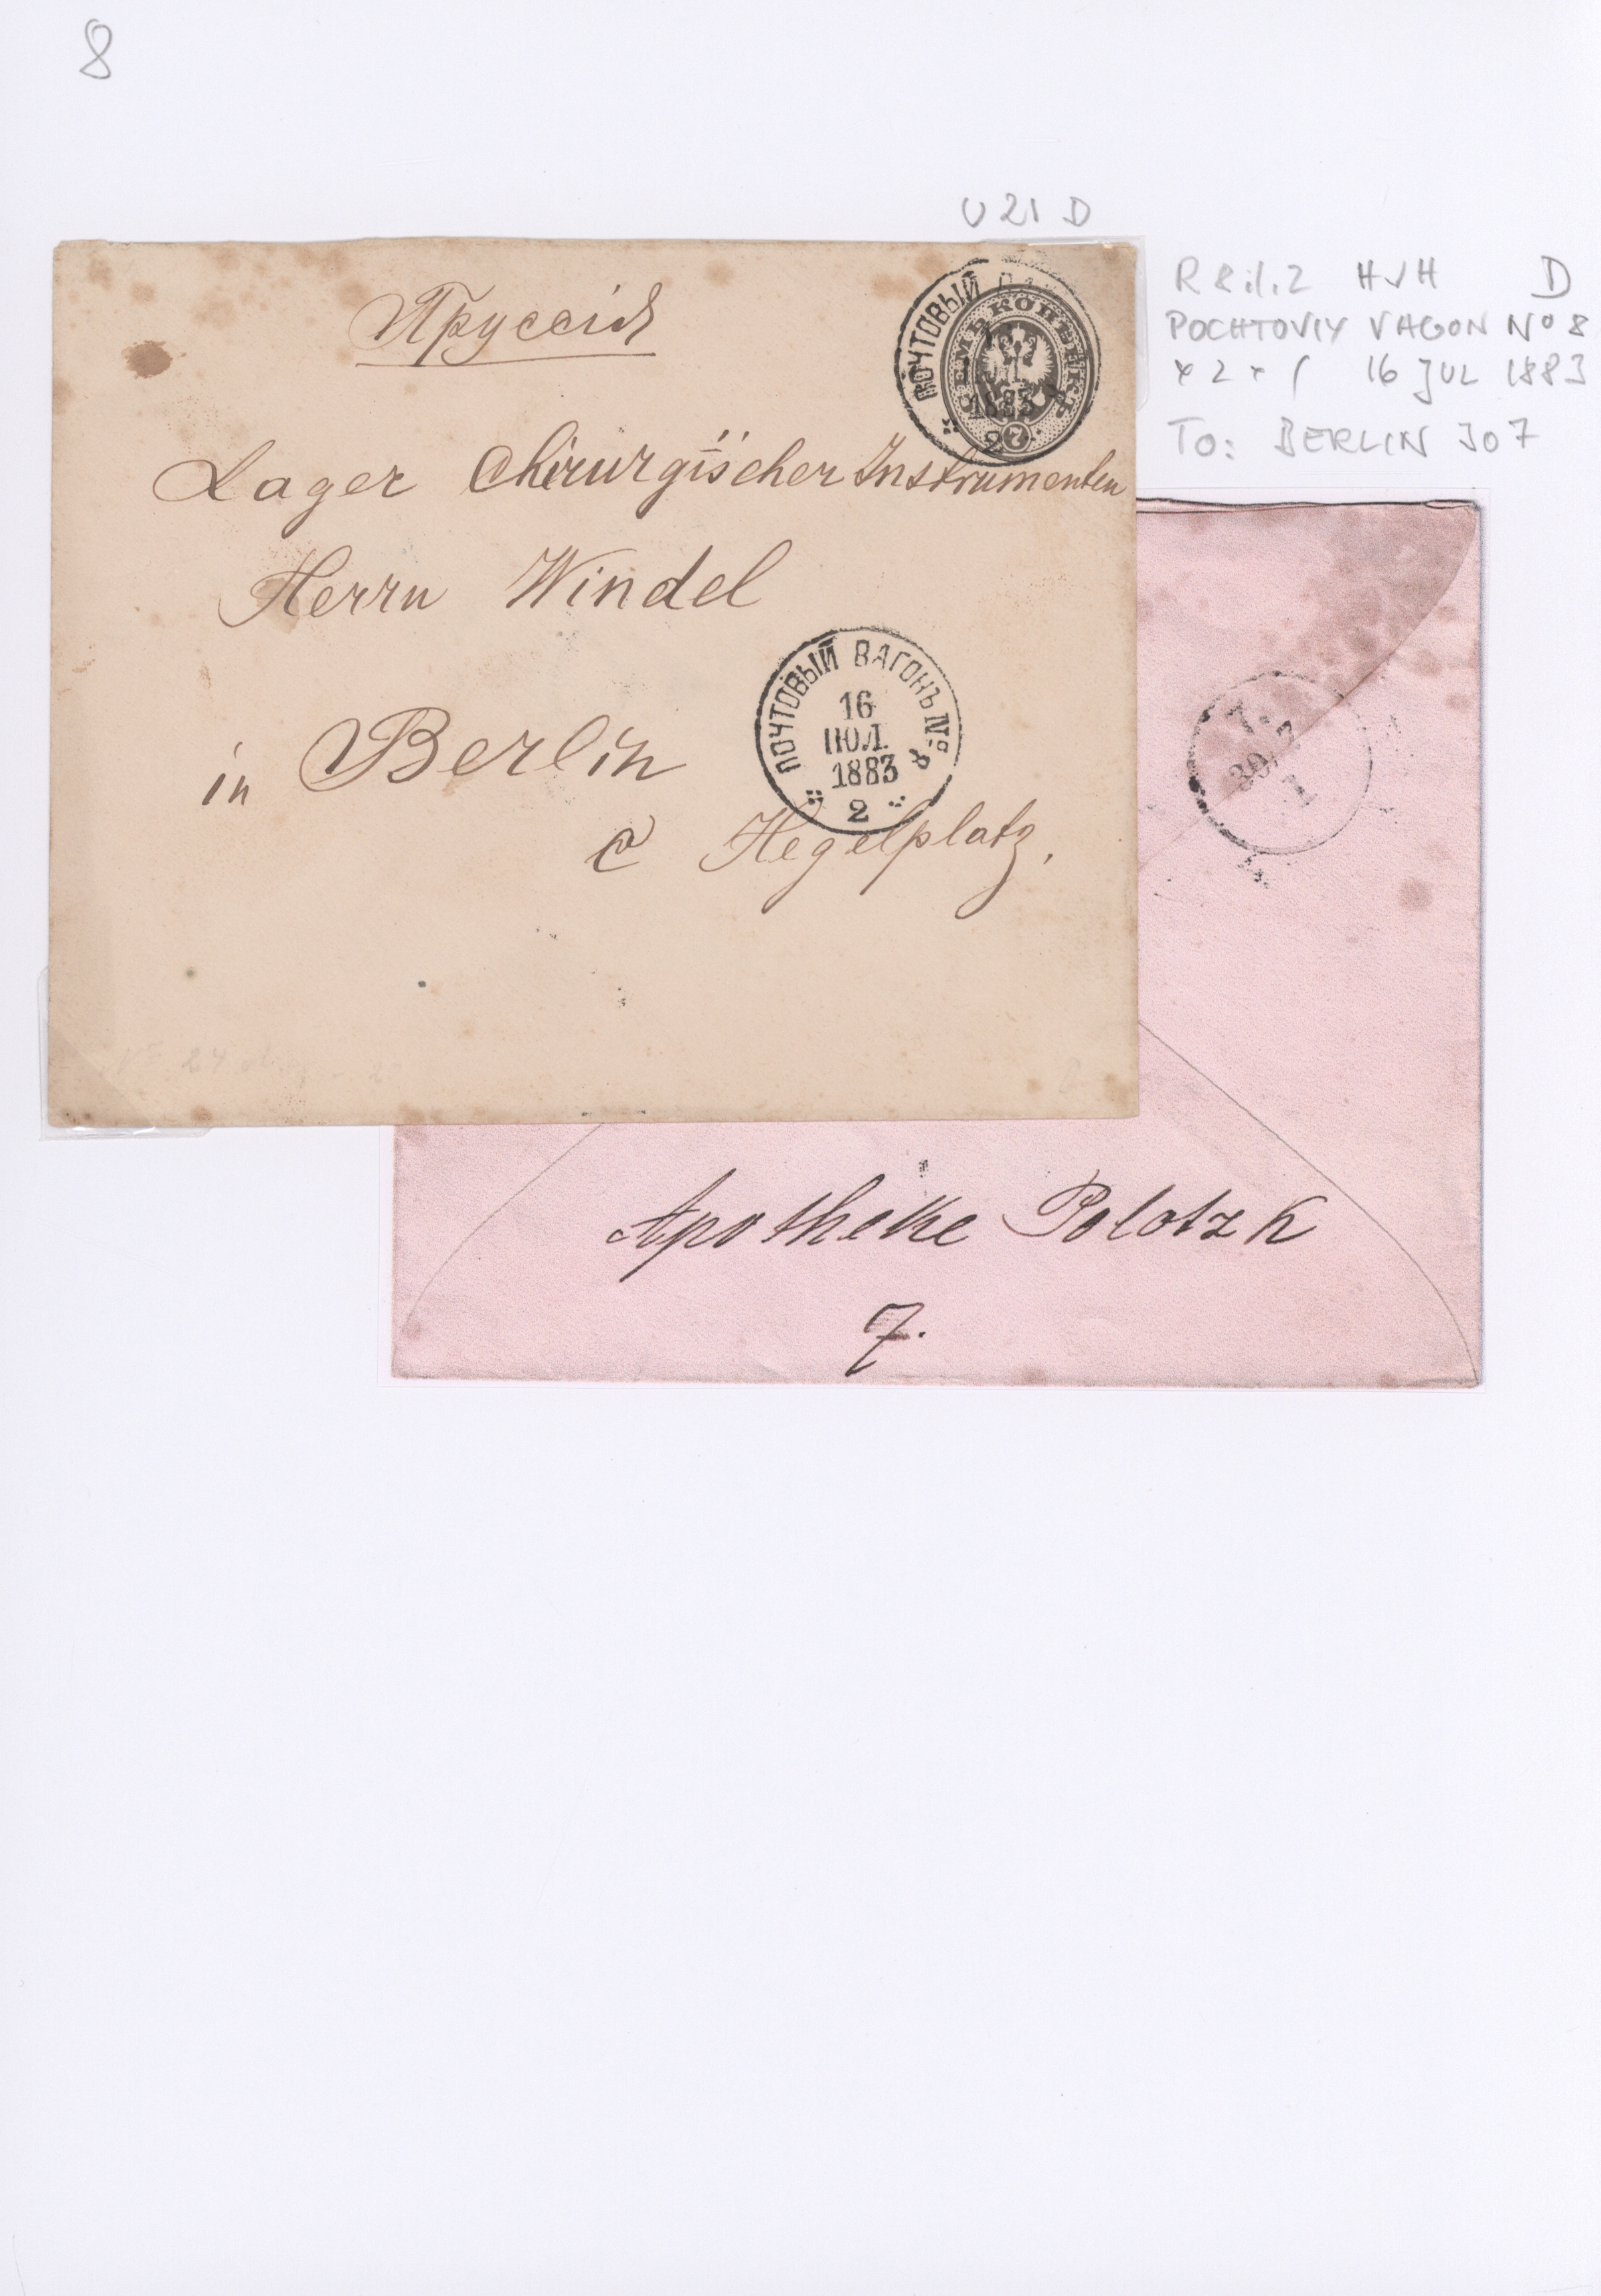 8
U 21 D
R 8.1.2 HVH D
POCHTOVIY VAGON No 8
2 16 JUL 1883
TO: BERLIN 30 7
Пруссія
Lager Chirurgischer Instrumenten
Herrn Windel
in Berlin
a Hegelplatz.
ПОЧТОВЫЙ
СЕМЬ КОПѢЕКЪ
1883
7
2
ПОЧТОВЫЙ ВАГОНЪ № 8
16
ІЮЛ.
1883
2
30 7
1
Apotheke Polotzk
7.